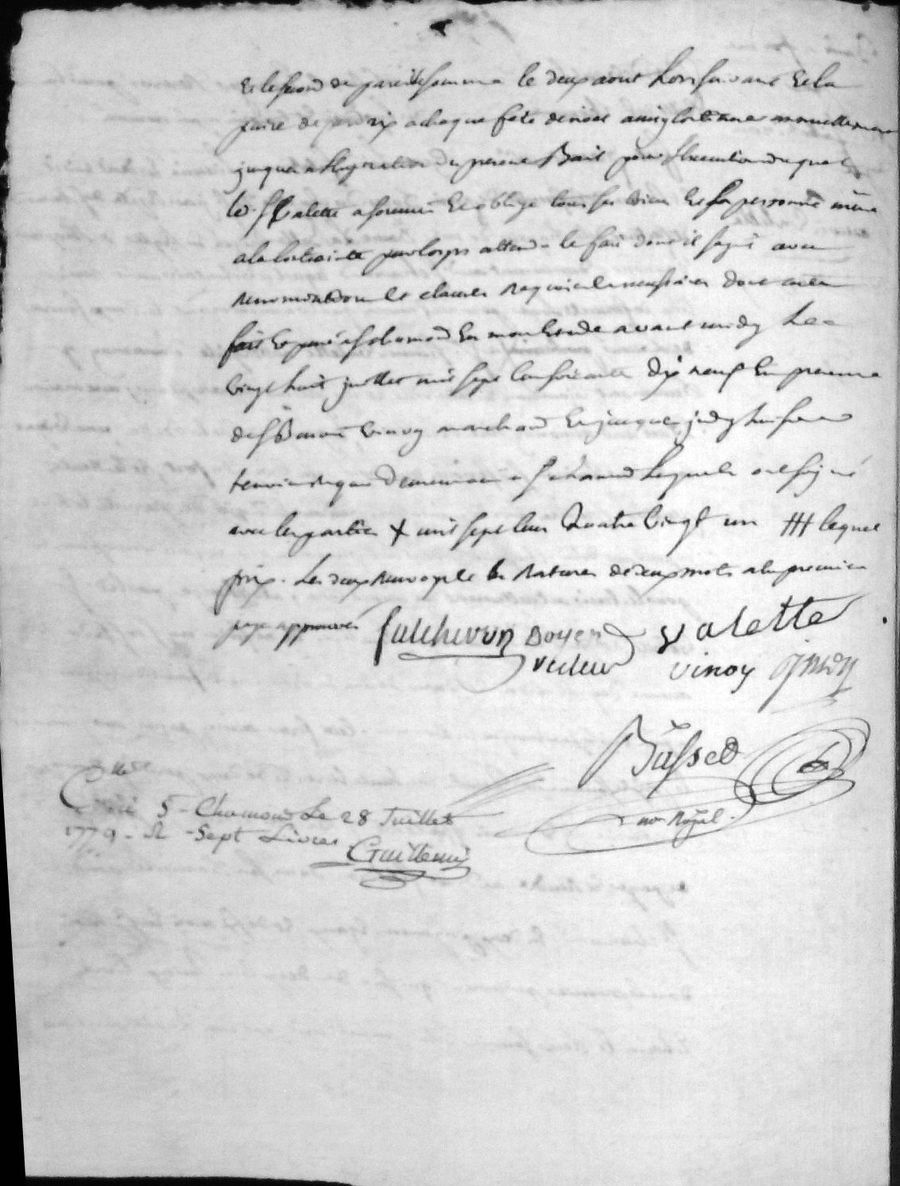 et le second de pareille somme le deux aout lors suivant et la
paire de                a chaque fete de noel              annuellement
jusques a l'expiration du present Bail pour l'execution duquel
led. Sr Valette a soumis et oblige tous ses biens et sa personne même
a la contrainte par corps attendu le fait dont il sagit avec
renonciations et clauses requises et necessaires dont acte
fait et passé a St chamond en mon etude avant midy Le
vingt huit juillet mil sept cent soixante dix neuf En presence
de Sr              vinoy marchand et jacques
temoins requis demeurant a St chamond lesquels ont signé
avec les parties X mil sept cent quatre vingt un ### lequel
prix. Les deux renvoys et les ratures de deux mots a la premiere
page approuvés
              Doyen valette
              vinoy
Basset
no.re Royal.
C.llé St Chamond Le 28 Juillet
1779 - R - Sept Livres
Guillemin